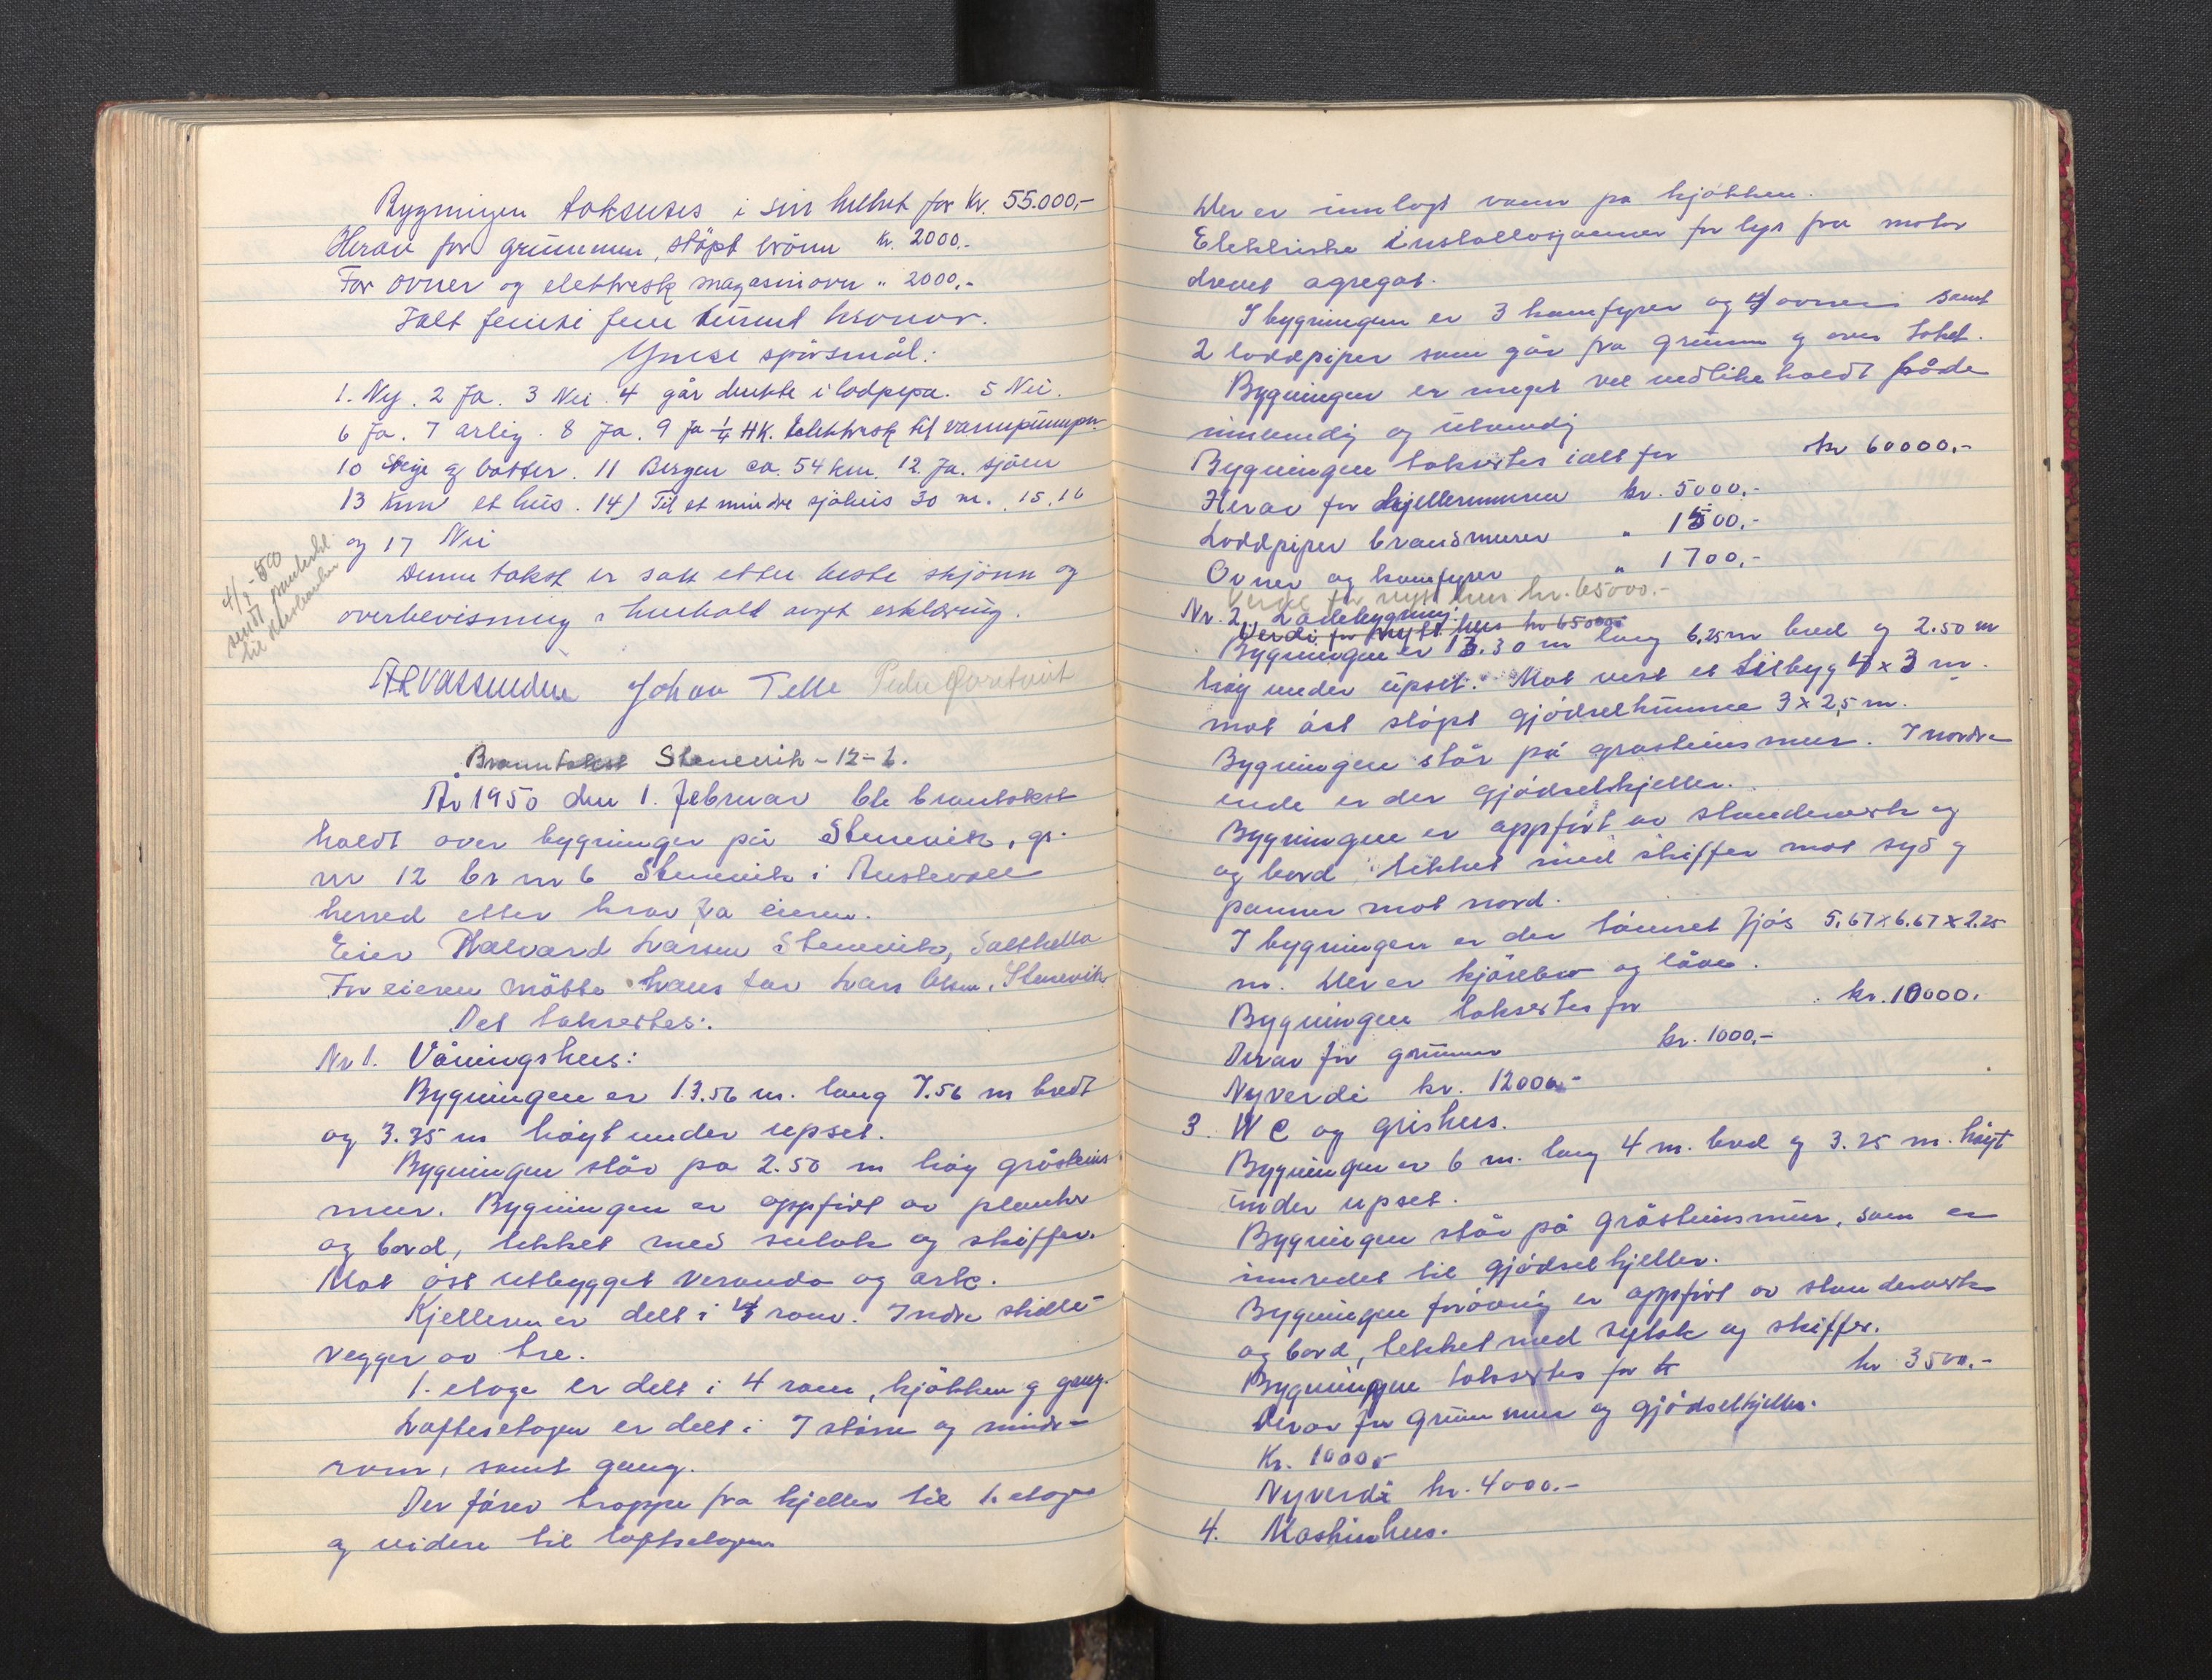 Bygningen takseres i sin helhet for Kr. 55.000,-
Herav for grunmur, støpt brönn kr. 2000.-
For ovner og elektresk magasinovn " 2000,-
Ialt femti fem tusend kronor.
Ymse spörsmål:
1. Ny. 2 Ja. 3 Nei. 4 går direkte i lodpipa. 5 Nei.
6 Ja. 7 arlig. 8 Ja. 9 Ja 1/4 HK. Elektresk til vannpumpe
10 Stige og bötter. 11 Bergen ca. 54 km. 12. Ja. sjöen
13 Kun et hus. 14) Til et mindre sjöhus 30 m. 15. 16
og 17 Nei
Denne takst er satt etter beste skjönn og
overbevisning i henhold avgit erklæring.
4/2-50
sendt
til
Johan Telle Peder
Branntakst Stenevik - 12-6.
År 1950 den 1. februar ble branntakst
holdt over bygninger på Stenevik, gr.
nr 12 br nr 6 Stenevik i Austevoll
herred etter krav fra eieren.
Eier Halvard Larsen Stenevik, Salthella
For eieren møtte hans far Lars Olsen, Stenevik
Det taksertes:
Nr 1. Våningshus:
Bygningen er 13.56 m. lang 7.56 m bredt
og 3.35 m höyt under upset.
Bygningen står pa 2.50 m höy gråsteins
mur. Bygningen er oppfört av planker
og bord, tekket med sutak og skiffer.
Mot öst utbygget veranda og ark.
Kjelleren er delt i 4 rom. Indre skille-
vegger av tre.
1. etage er delt i 4 rom, kjökken og gang.
Loftsetagen er delt i 7 större og mindre
rom, samt gang.
Der förer trappe fra kjeller til 1. etage
og videre til loftsetagen.
Der er innlagt vann pa kjökken.
Elektriske installasjoner for lys fra motor
drevet agregat.
I bygningen er 3 komfyrer og 4 ovner samt
2 loddpiper som går fra grunn og over taket.
Bygningen er meget vel vedlikeholdt både
innvendig og utvendig
Bygningen taksertes ialt for kr 60000.-
Herav for kjellermuren kr. 5000.-
Loddpiper bransmurer " 1500.-
Ovner og komfyrer " 1700,-
Verdi for nytt hus kr. 65000.-
Nr. 2. Ladebygning:
Verdi for nytt hus kr 65000
Bygningen er 13.30 m lang 6.25 m bred og 2.50 m
höy under upset. Mot vest et tilbyg 4 x 3 m.
mot öst stöpt gjödselkumme 3 x 2,5 m.
Bygningen står på grasteinsmur. I nordre
ende er der gjödselkjeller.
Bygningen er oppfört av standerverk og
og bord tekket med skiffer mot syd og
panner mot nord.
I bygningen er der tömret fjös 5,67 x 6.67 x 2.25
m. Der er kjörebro og låve.
Bygningen taksertes for kr. 10000.
Derav for grunnmur kr. 1000,-
Nyverdi kr. 12000.-
3. W C og grishus.
Bygningen er 6 m. lang 4 m. bred og 3.25 m. höyt
under upset.
Bygningen står på gråsteinsmur, som er
innredet til gjödselkjeller.
Bygningen forövrig er oppfört av standerverk
og bord, tekket med sutak og skiffer.
Bygningen taksertes for kr kr 3500.-
Derav for grunnmur og gjödselkjeller.
Kr. 1000,-
Nyverdi kr. 4000.-
4. Maskinhus.